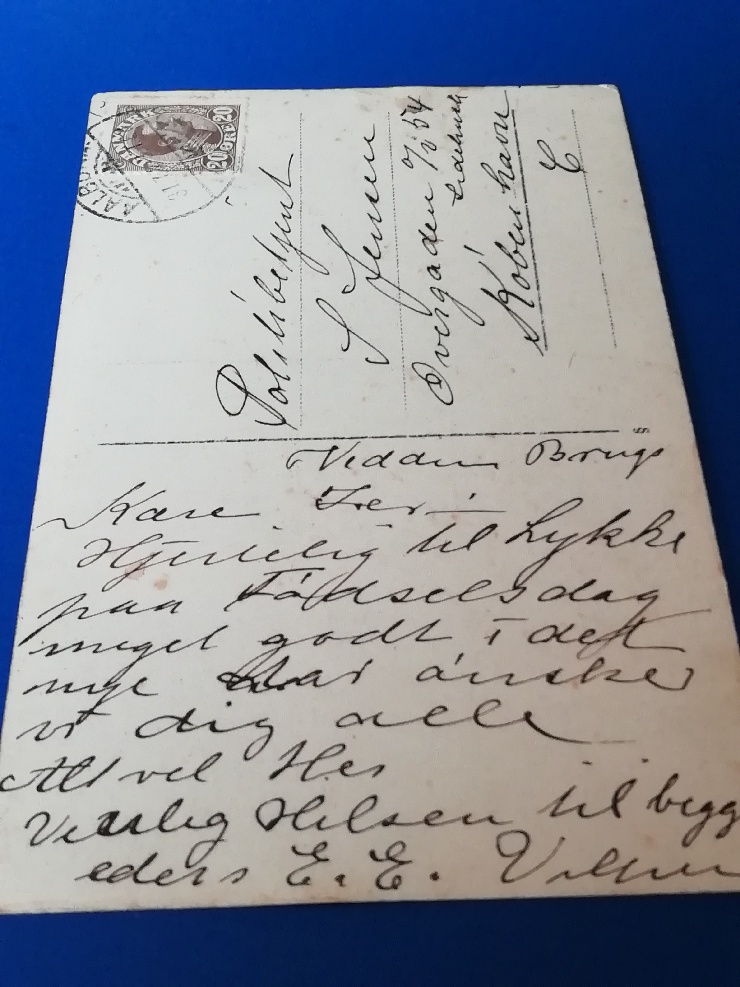 DANMARK
20 ØRE 20
AALB
Politibetjent
S Jensen
Overgaden o/v 54
København
C
Veddum Brugs
Kære
Hjertelig til Lykke
paa Fødselsdag
meget godt i det
nye Aar ønsker
vi dig alle
Alt vel Her
Venlig Hilsen til begg
eders E. E.